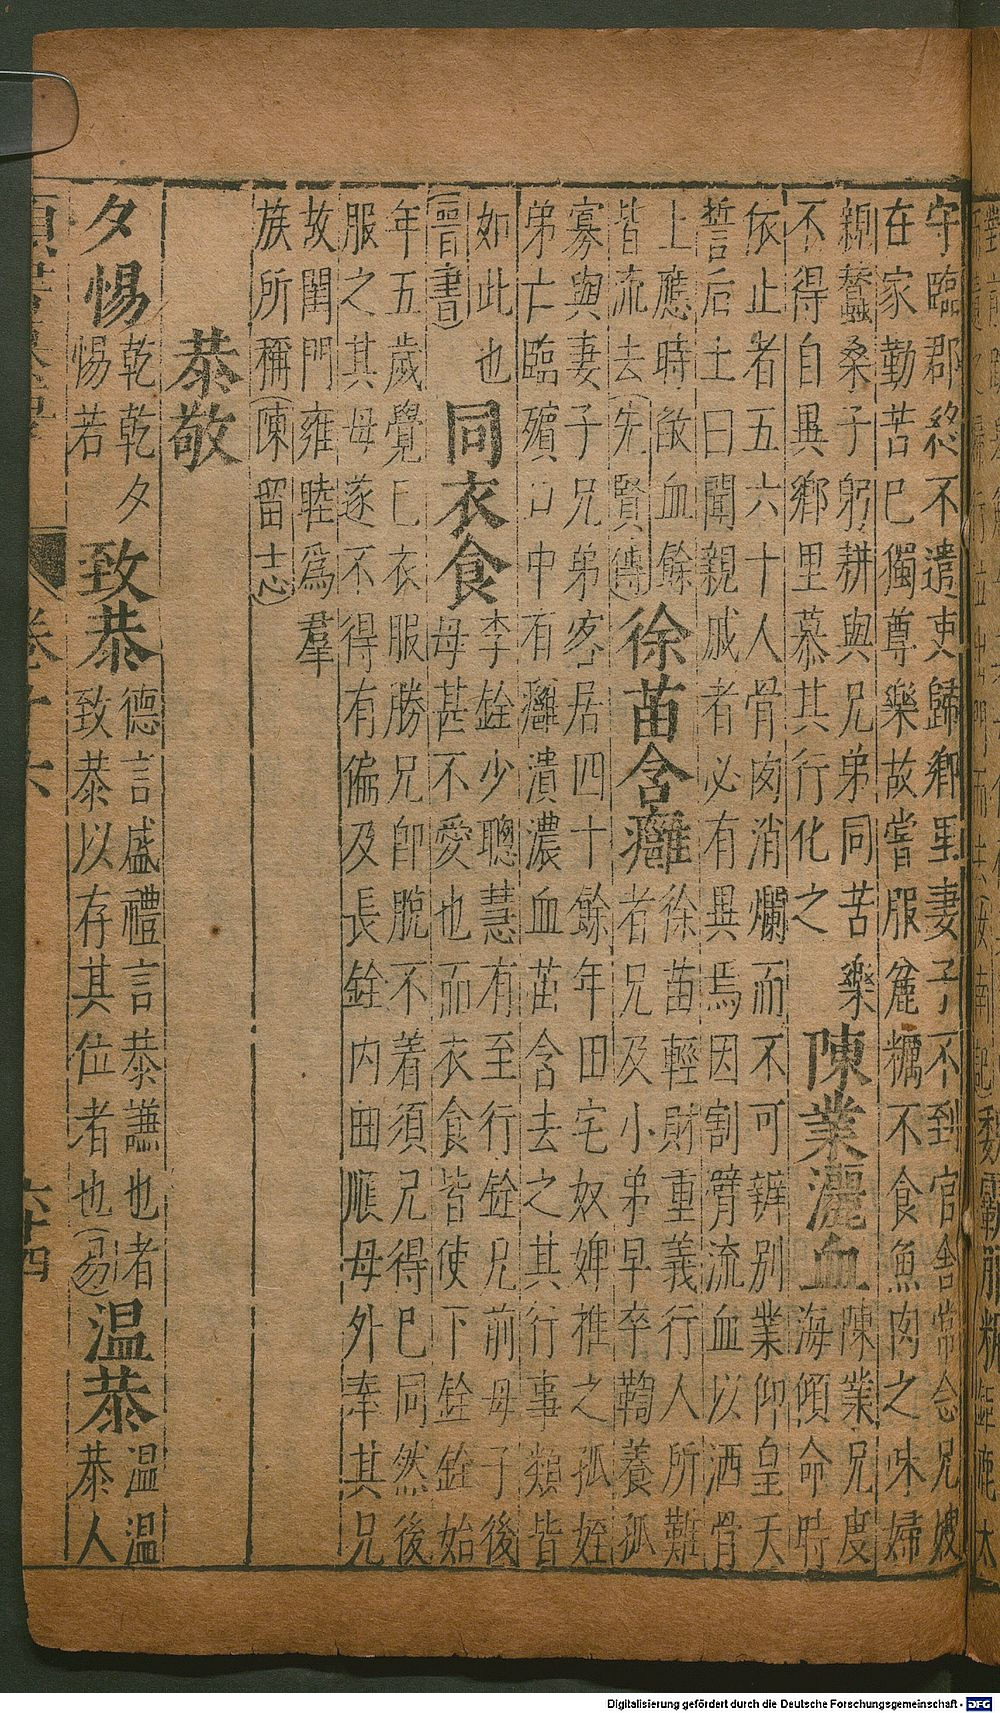 守臨郡終不遣吏歸鄉里妻子不到官舍常念兄嫂
在家勤苦已獨尊樂故嘗服麄糲不食魚肉之味婦
親蠶桑子躬耕與兄弟同苦樂
不得自異鄉里慕其行化之
陳業灑血
陳業兄度
海傾命時
依止者五六十人骨肉消爛而不可辨別業仰皇天
誓后土曰聞親戚者必有異焉因割臂流血以洒骨
上應時歃血餘
皆流去(先賢傳)
徐苗含癰
徐苗輕財重義行人所難
者兄及小弟早卒鞫養孤
寡與妻子兄弟客居四十餘年田宅奴婢推之孤姪
弟亡臨殯口中有癰潰濃血苗含去之其行事類皆
如此也
(晋書)
同衣食
李銓少聰慧有至行銓兄前母子後
母甚不愛也而衣食皆使下銓銓始
年五歲覺已衣服勝兄即脫不着須兄得已同然後
服之其母遂不得有偏及長銓內匡順母外奉其兄
故閨門雍睦爲羣
族所稱(陳留志)
恭敬
夕惕
乾乾夕
惕若
致恭
德言盛禮言恭謙也者
致恭以存其位者也(易)
温恭
温温
恭人
卷
六十四
Digitalisierung gefördert durch die Deutsche Forschungsgemeinschaft - DFG